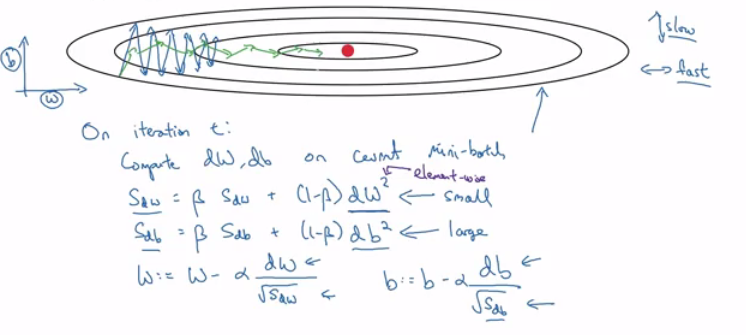 slow
b
fast
w
On iteration t:
Compute dW, db on current mini-batch
element-wise
S_dw = β S_dw + (1-β) dW² ← small
S_db = β S_db + (1-β) db² ← large
W := W - α dW/√S_dw b := b - α db/√S_db